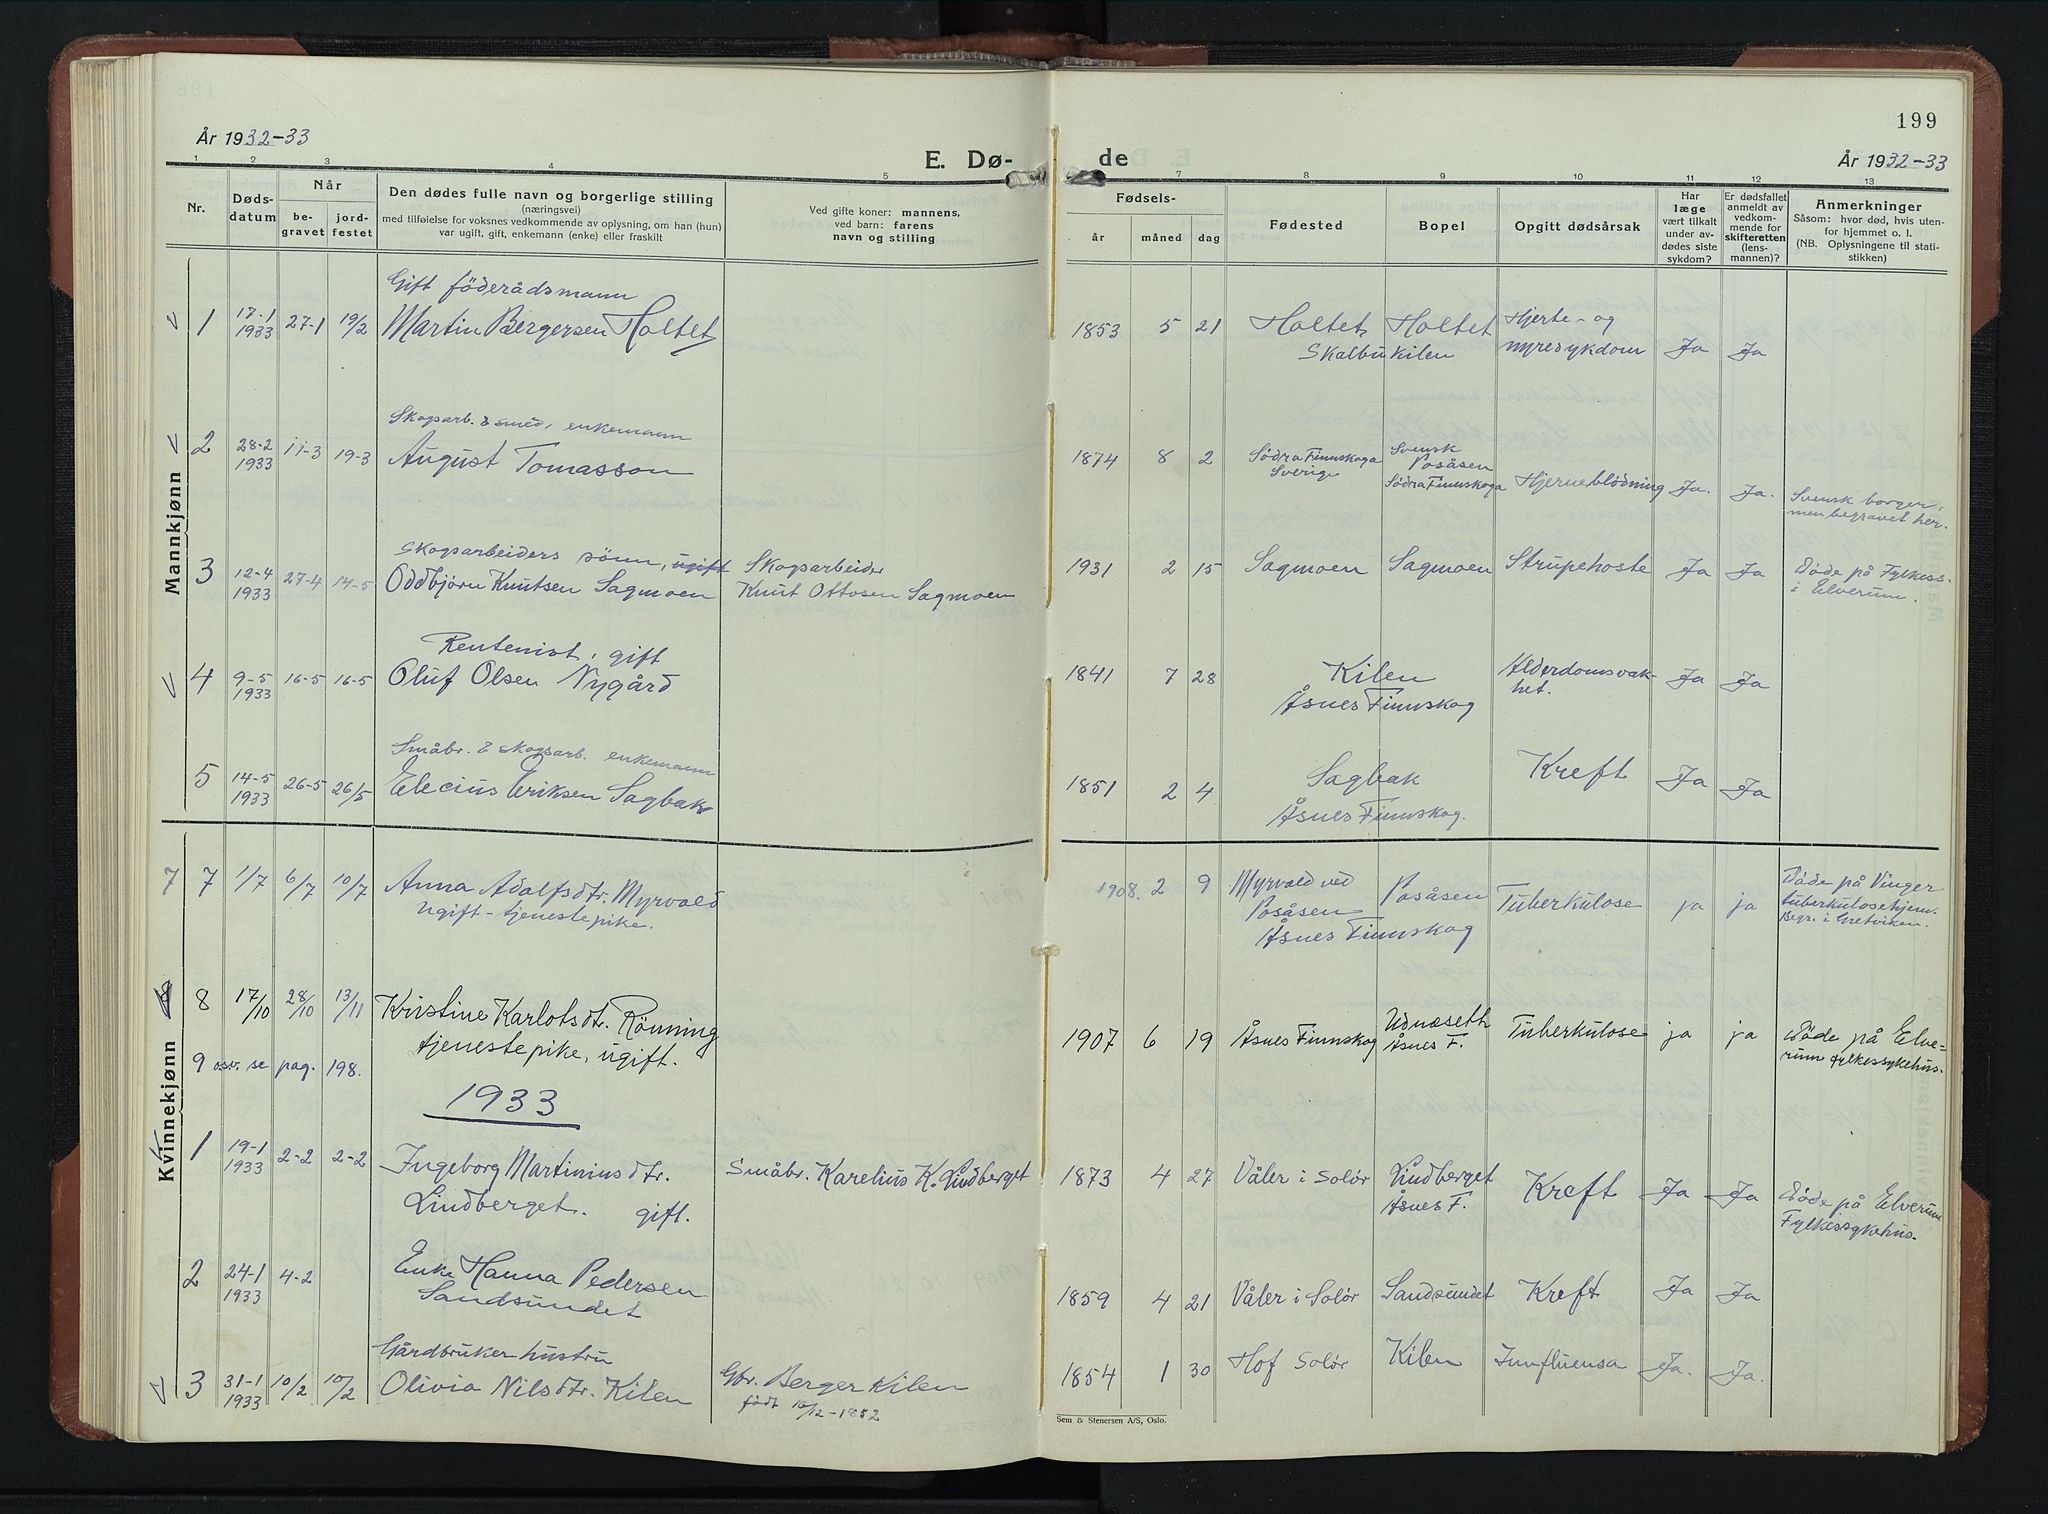 År 1932-33
E. Dø-
1 2 3 4 5
Nr.
Døds-
datum
Når
be-
gravet
jord-
festet
Den dødes fulle navn og borgerlige stilling
(næringsvei)
med tilføielse for voksnes vedkommende av oplysning, om han (hun)
var ugift, gift, enkemann (enke) eller fraskilt
Ved gifte koner: mannens,
ved barn: farens
navn og stilling
Mannkjønn
Gift föderådsmann
1 17-1 1933 27-1 19/2 Martin Bergersen Holtet
Skogsarb. & smed, enkemann
2 28-2 1933 11-3 19-3 August Tomasson
Skogsarbeiders sönn, ugift Skogsarbeider
3 12-4 1933 27-4 14-5 Oddbjörn Knutsen Sagmoen Knut Ottosen Sagmoen
Rentenist, gift
4 9-5 1933 16-5 16-5 Oluf Olsen Nygård
Småbr. & skogsarb. enkemann
5 14-5 1933 26-5 26/5 Elecius Eriksen Sagbak
Kvinnekjønn
7 7 1/7 6/7 10/7 Anna Adolfsdtr. Myrvold
ugift - tjenestepike.
8 8 17/10 28/10 13/11 Kristine Karlotsdtr. Rönning
tjenestepike, ugift.
9 osv. se pag. 198.
1933
1 19-1 1933 2-2 2-2 Ingeborg Martiniusdtr. Småbr. Karelius K. Lindberget
Lindberget. gift.
2 24-1 1933 4-2 Enke Hanna Pedersen
Sandsundet
Gårdbruker hustru
3 31-1 1933 10/2 10/2 Olivia Nilsdtr. Kilen Gbr. Berger Kilen
födt 16/12-1852
199
de
År 1932-33
7 8 9 10 11 12 13
Fødsels-
år måned dag
Fødested
Bopel
Opgitt dødsårsak
Har
læge
vært tilkalt
under av-
dødes siste
sykdom?
Er dødsfallet
anmeldt av
vedkom-
mende for
skifteretten
(lens-
mannen)?
Anmerkninger
Såsom: hvor død, hvis uten-
for hjemmet o. l.
(NB. Oplysningene til stati-
stikken)
1853 5 21 Holtet Holtet Hjerte- og
Skalbukilen nyresykdom Ja Ja
1874 8 2 Södra Finnskoga Sverige Svensk Posåsen
Södra Finnskoga Hjerneblödning Ja. Ja. Svensk borger,
men begravet her.
1931 2 15 Sagmoen Sagmoen Strupehoste Ja Ja Döde på Fylkess-
i Elverum.
1841 7 28 Kilen Alderdomsvak-
Åsnes Finnskog het. Ja Ja
1851 2 4 Sagbak Kreft Ja Ja
Åsnes Finnskog.
1908. 2 9 Myrvold ved Posåsen Tuberkulose ja ja Döde på Vinger
Posåsen tuberkulosehjem.
Åsnes Finnskog Begr. i Gretviken.
1907 6 19 Åsnes Finnskog Udnæseth Tuberkulose ja ja Döde på Elve=
Åsnes F. rum fylkessykehus.
1873 4 27 Våler i Solör Lindberget Kreft Ja Ja Döde på Elverum
Åsnes F. Fylkessykehus.
1859 4 21 Våler i Solör Sandsundet Kreft Ja Ja
1854 1 30 Hof Solör Kilen Innfluensa Ja. Ja.
Sem & Stenersen A/S, Oslo.